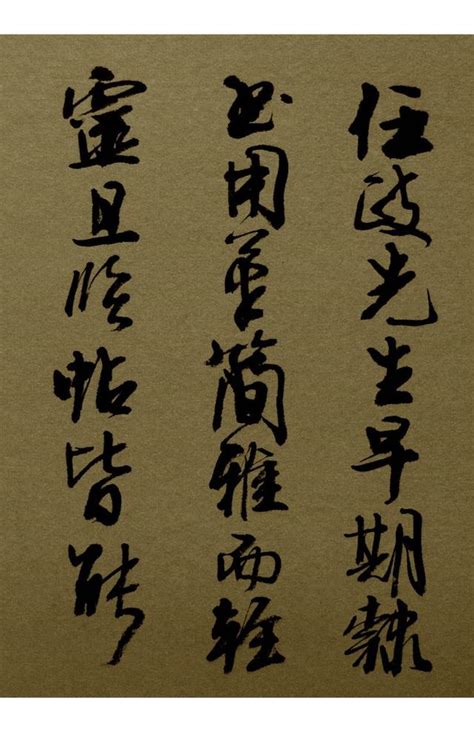 任政先生早期隸
书用筆簡雅而輕
靈且临帖皆能